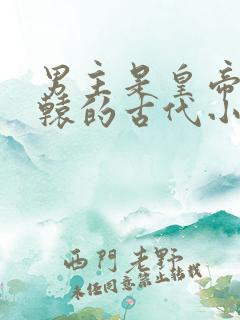 男主是皇帝
辕的古代小
西門老野
未经同意禁止转载